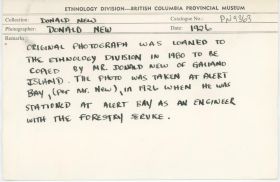 ETHNOLOGY DIVISION—BRITISH COLUMBIA PROVINCIAL MUSEUM
Collection: DONALD NEW Catalogue No.: PN 9363
Photographer: DONALD NEW Date: 1926
Remarks:
ORIGINAL PHOTOGRAPH WAS LOANED TO
THE ETHNOLOGY DIVISION IN 1980 TO BE
COPIED BY MR. DONALD NEW OF GALIANO
ISLAND. THE PHOTO WAS TAKEN AT ALERT
BAY, (PER MR. NEW), IN 1926 WHEN HE WAS
STATIONED AT ALERT BAY AS AN ENGINEER
WITH THE FORESTRY SERVICE.